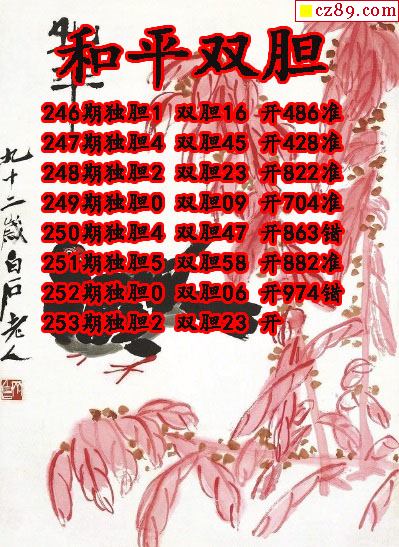 cz89.com
和平双胆
246期独胆1 双胆16 开486准
247期独胆4 双胆45 开428准
248期独胆2 双胆23 开822准
249期独胆0 双胆09 开704准
250期独胆4 双胆47 开863错
251期独胆5 双胆58 开882准
252期独胆0 双胆06 开974错
253期独胆2 双胆23 开
九十二岁白石老人